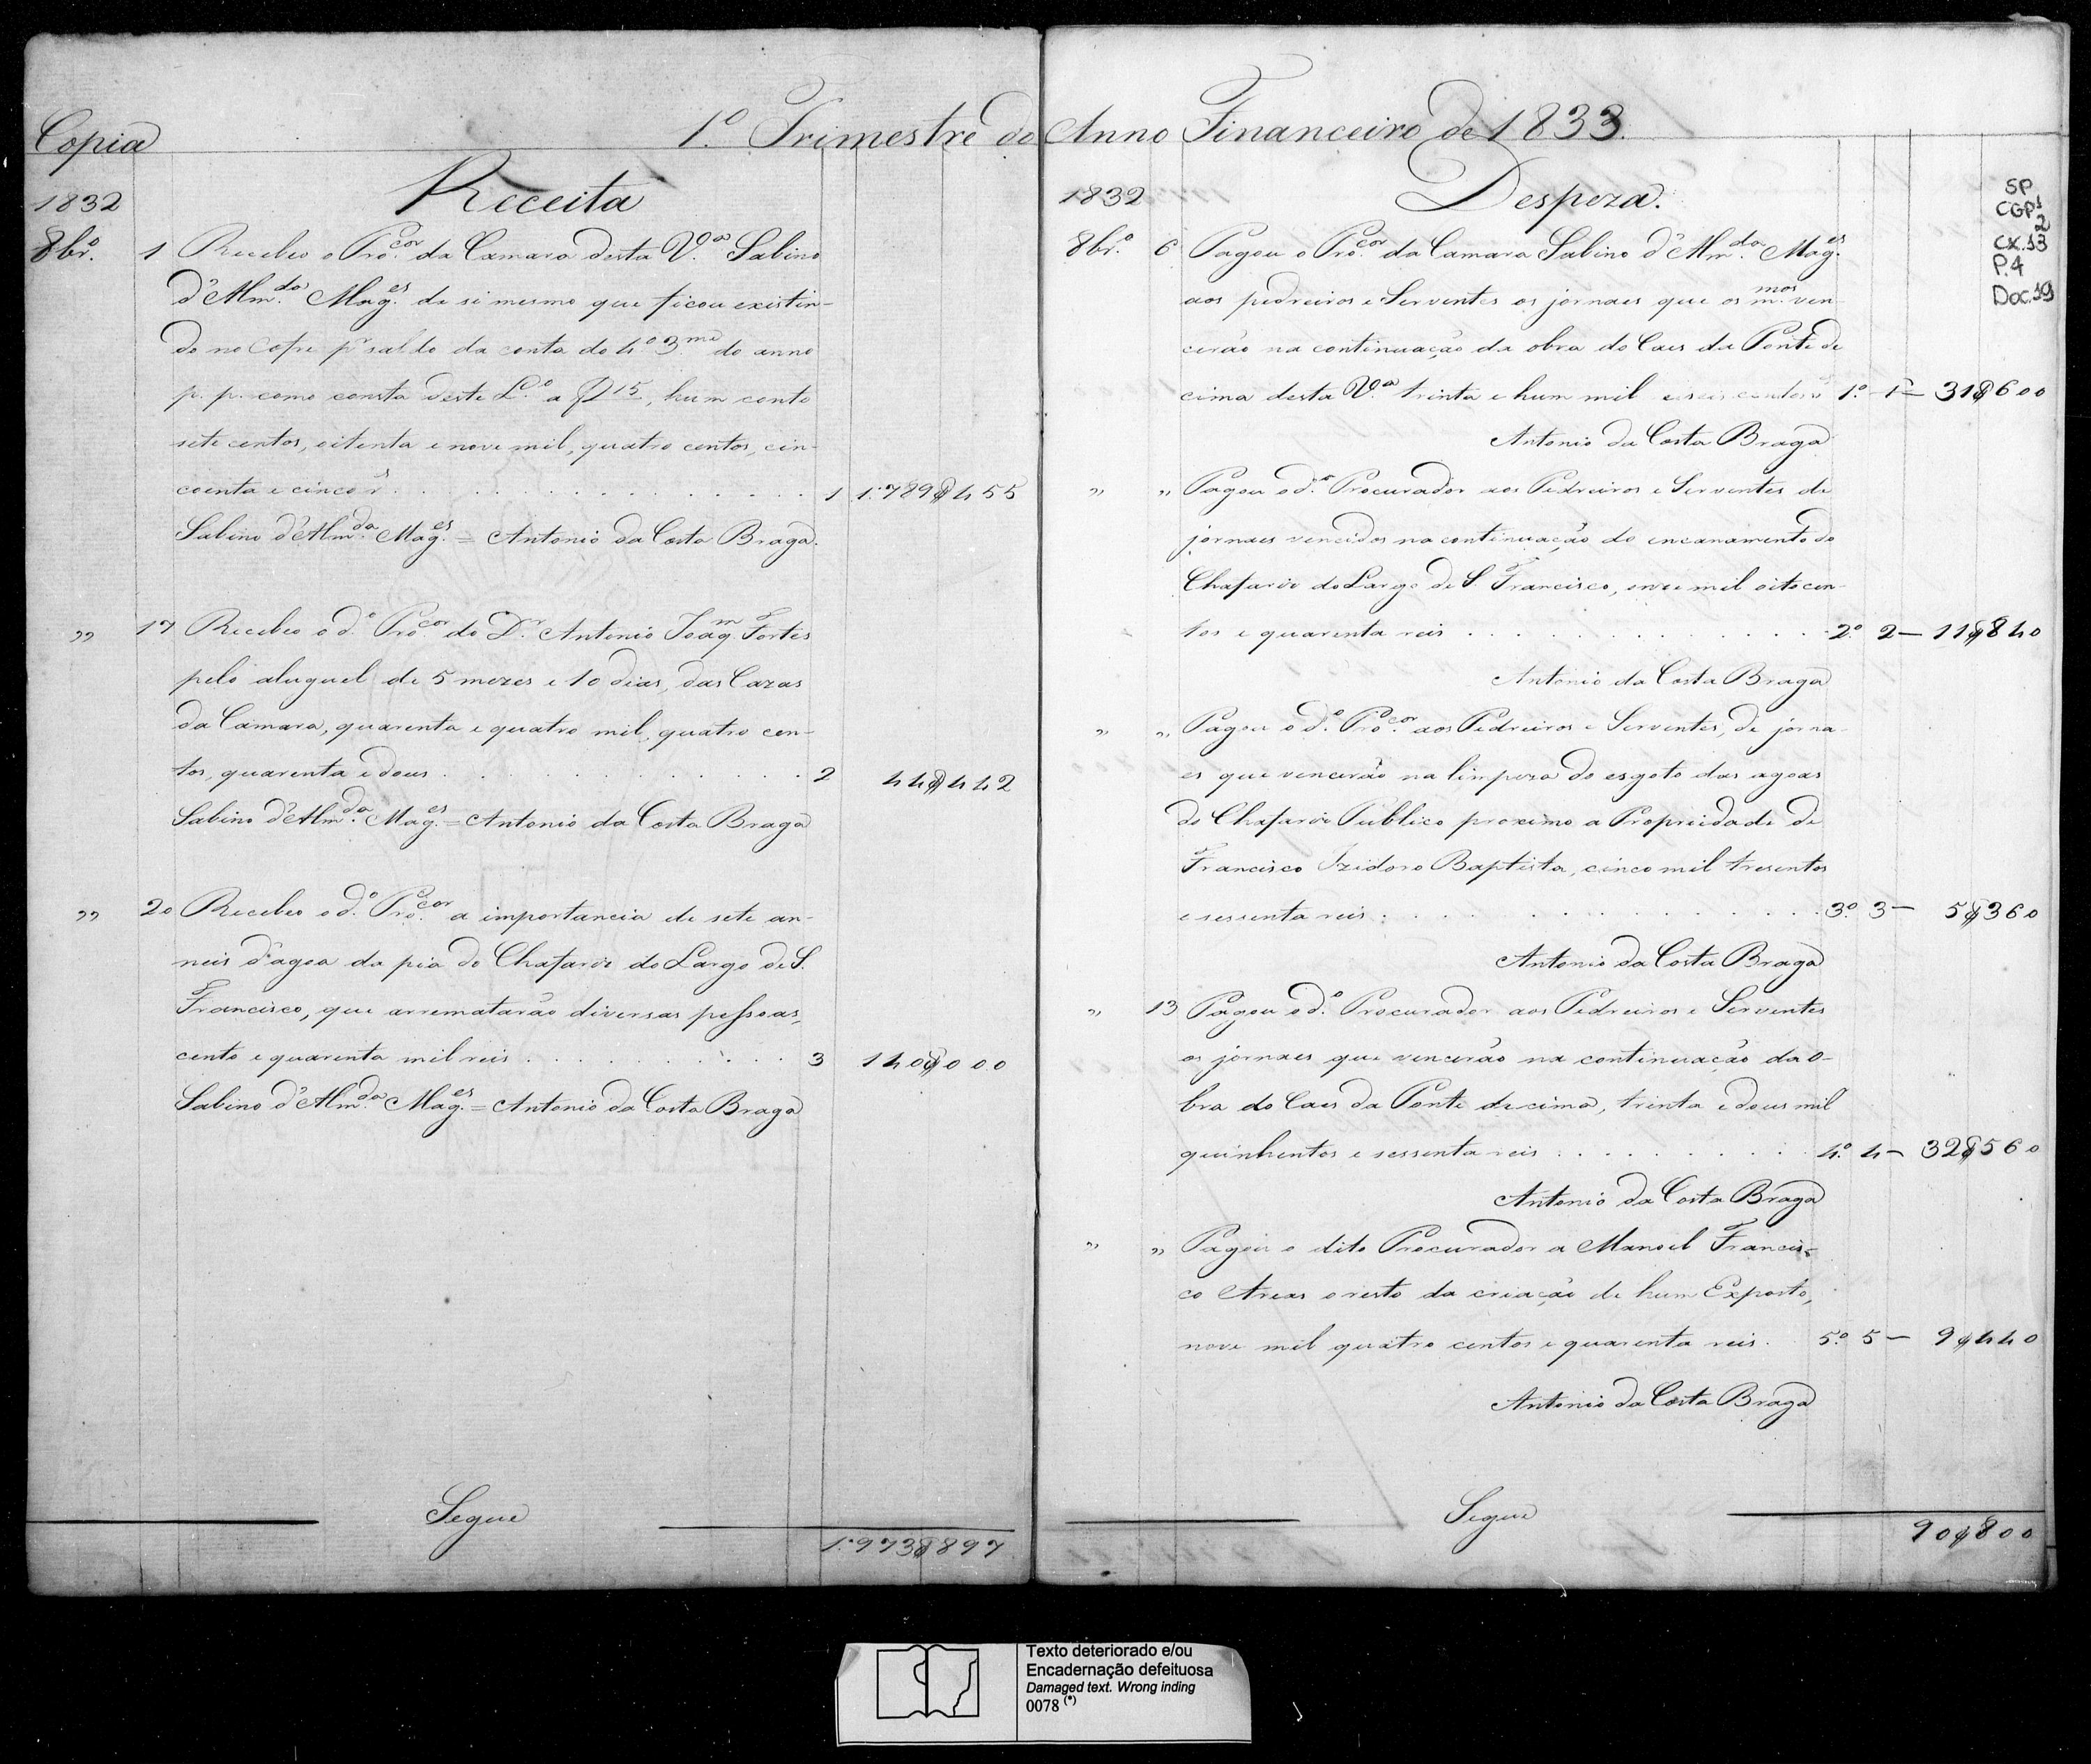 Copia
1º Trimestre do Anno Financeiro de 1833.
1832
Receita
8brº. 1 Recebeo o Procor. da Camara desta Vª. Sabino
d'Almda. Mages. de si mesmo que ficou existin-
do no Cofre pr saldo da conta do 4º 3me do anno
p. p. como consta deste Lº. a f 15, hum conto
sete centos, oitenta e nove mil, quatro centos, cin-
coenta e cinco rs. . . . 1 1:789$455
Sabino d'Almda. Mages. = Antonio da Costa Braga.
" 17 Recebeo o dº. Procor. do Dr. Antonio Joaqm. Fortes
pelo aluguel de 5 mezes e 10 dias, das Cazas
da Camara, quarenta e quatro mil, quatro cen-
tos, quarenta e dous . . . 2 44$442
Sabino d'Almda. Mages. = Antonio da Costa Braga
" 20 Recebeo o dº. Procor. a importancia de sete an-
neis d'agoa da pia do Chafariz do Largo de S.
Francisco, que arrematarão diversas pessoas,
cento e quarenta mil reis . . . 3 140$000
Sabino d'Almda. Mages. = Antonio da Costa Braga
Segue
1:973$897
1832
Despeza.
8brº. 6 Pagou o Procor. da Camara Sabino d'Almda. Mages.
aos pedreiros e Serventes os jornaes que os mmos. ven-
cerão na continuação da obra do Caes da Ponte de
cima desta Vª. trinta e hum mil e seis centos rs 1º. 1 — 31$600
Antonio da Costa Braga
" " Pagou o dº. Procurador aos Pedreiros e Serventes de
jornaes vencidos na continuação do encanamento do
Chafariz do Largo de S. Francisco, onze mil oitocen-
tos e quarenta reis . . . 2º. 2 — 11$840
Antonio da Costa Braga
" " Pagou o dº. Procor. aos Pedreiros e Serventes, de jorna-
es que vencerão na limpeza do esgoto das agoas
do Chafariz Publico proximo a Propriedade de
Francisco Izidoro Baptista, cinco mil tresentos
e sessenta reis . . . 3º. 3 — 5$360
Antonio da Costa Braga
" 13 Pagou o dº. Procurador aos Pedreiros e Serventes
os jornaes que vencerão na continuação da o-
bra do Caes da Ponte de cima, trinta e dous mil
quinhentos e sessenta reis . . . 4º. 4 — 32$560
Antonio da Costa Braga
" " Pagou o dito Procurador a Manoel Francis-
co Areas o resto da criação de hum Exposto,
nove mil quatro centos e quarenta reis. 5º. 5 — 9$440
Antonio da Costa Braga
Segue
90$800
SP
CGP1
2
CX.13
P.4
Doc.19
Texto deteriorado e/ou
Encadernação defeituosa
Damaged text. Wrong inding
0078 (*)